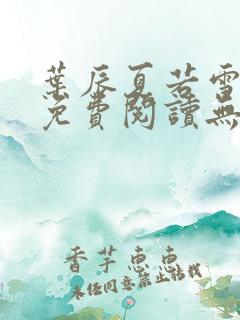 葉辰夏若雪
免費閱讀無
香芋惠惠
未经同意禁止转载